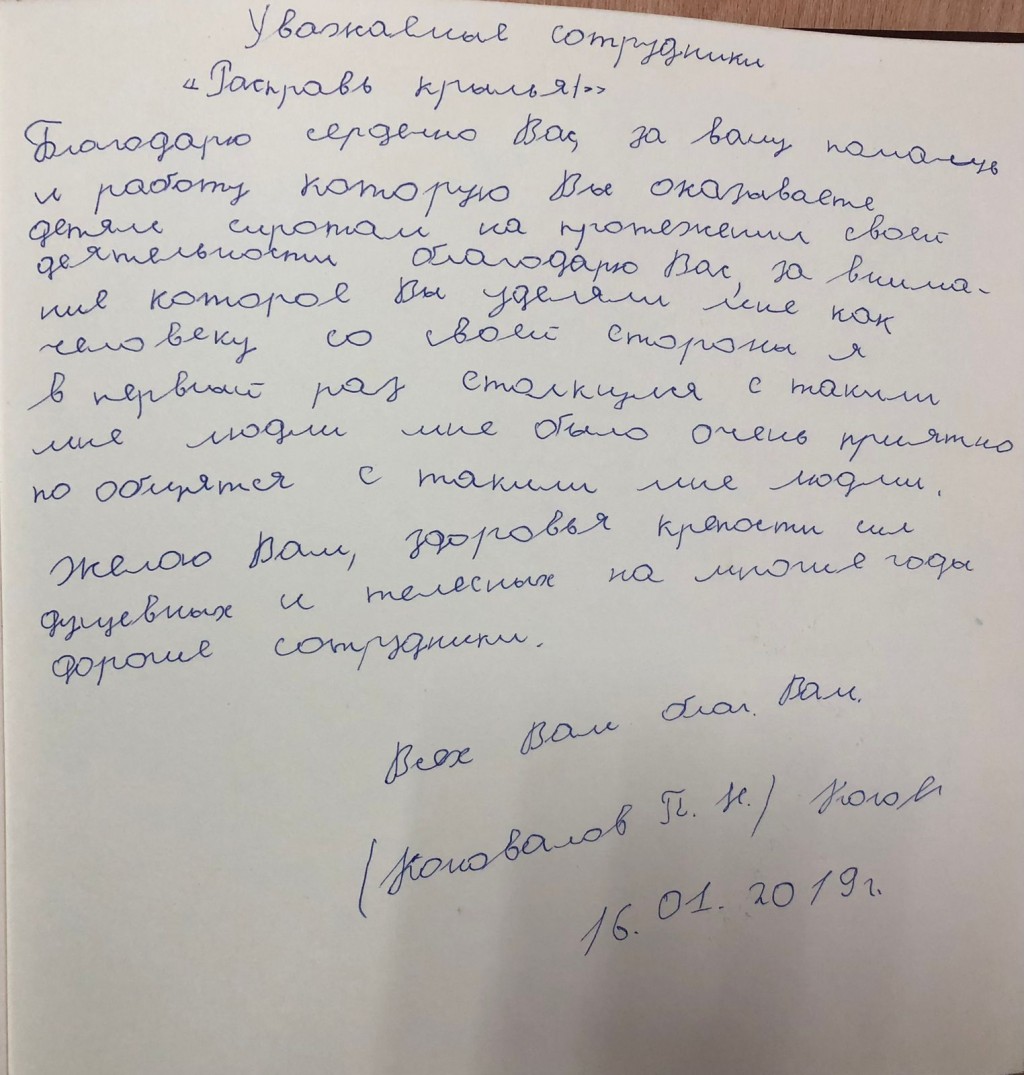 Уважавные сотрудники
«Расправь крылья!»
Благодарю сердечно Вас, за вашу помащь
и работу которую Вы оказываете
детям сиротам на протежении своей
деятельности благодарю Вас, за внима-
ние которое Вы уделяли мне как
человеку со своей стороны я
в первый раз столкнулся с такими
мне людми мне было очень приятно
по общятся с такими мне людми.
Желаю Вам, здоровья крепости сил
душевных и телесных на многие годы
дорогие сотрудники.
Всех Вам благ. Вам.
(Коновалов П. Н.)
16.01.2019г.